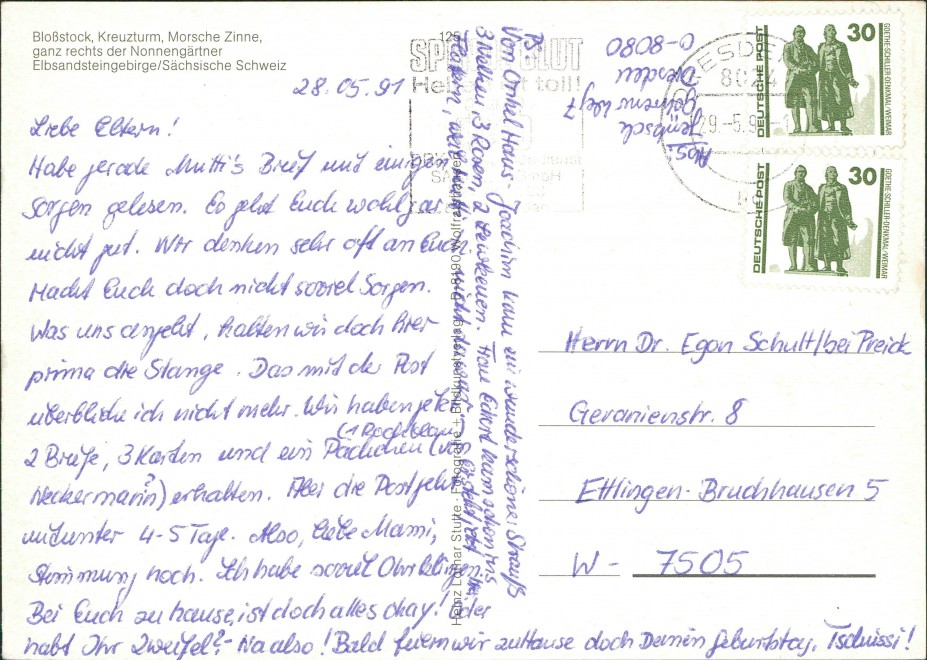 Bloßstock, Kreuzturm, Morsche Zinne,
ganz rechts der Nonnengärtner
Elbsandsteingebirge/Sächsische Schweiz
28.05.91
Liebe Eltern!
Habe gerade Mutti's Brief mit einigen
Sorgen gelesen. Es geht Euch wohl gar
nicht gut. Wir denken sehr oft an Euch.
Macht Euch doch nicht soviel Sorgen.
Was uns angeht, halten wir doch hier
prima die Stange. Das mit der Post
überblicke ich nicht mehr. Wir haben jetzt
(1 Rock blau)
2 Briefe, 3 Karten und ein Päckchen (von
Neckermann?) erhalten. Aber die Post geht
mitunter 4-5 Tage. Also, liebe Mami,
Stimmung hoch. Ich habe soviel Ohrklingen.
Bei Euch zu hause, ist doch alles okay! Oder
habt Ihr Zweifel? - Na also! Bald feiern wir zu Hause doch Deinen Geburtstag. Tschüssi!
PS
Von Onkel Hans-Joachim kam ein wunderschöner Strauß
3 Nelken, 3 Rosen, 2 Levkoien. Frau Eckert kam schon ins
Heinz Lothar Stutte · Fotografie + Bildkunstverlag
Abs.
Dresden
O-8080
125
SPENDE BLUT
DRESDEN
8024
29.-5.9
DEUTSCHE POST
30
GOETHE-SCHILLER-DENKMAL/WEIMAR
DEUTSCHE POST
30
GOETHE-SCHILLER-DENKMAL/WEIMAR
Herrn Dr. Egon Schult/bei Preick
Geranienstr. 8
Ettlingen-Bruchhausen 5
W- 7505